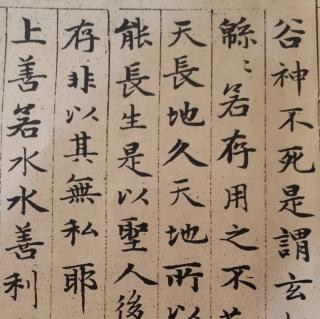 谷神不死是謂玄
緜〻若存用之不
天長地久天地所以
能長生是以聖人後
存非以其無私耶
上善若水水善利